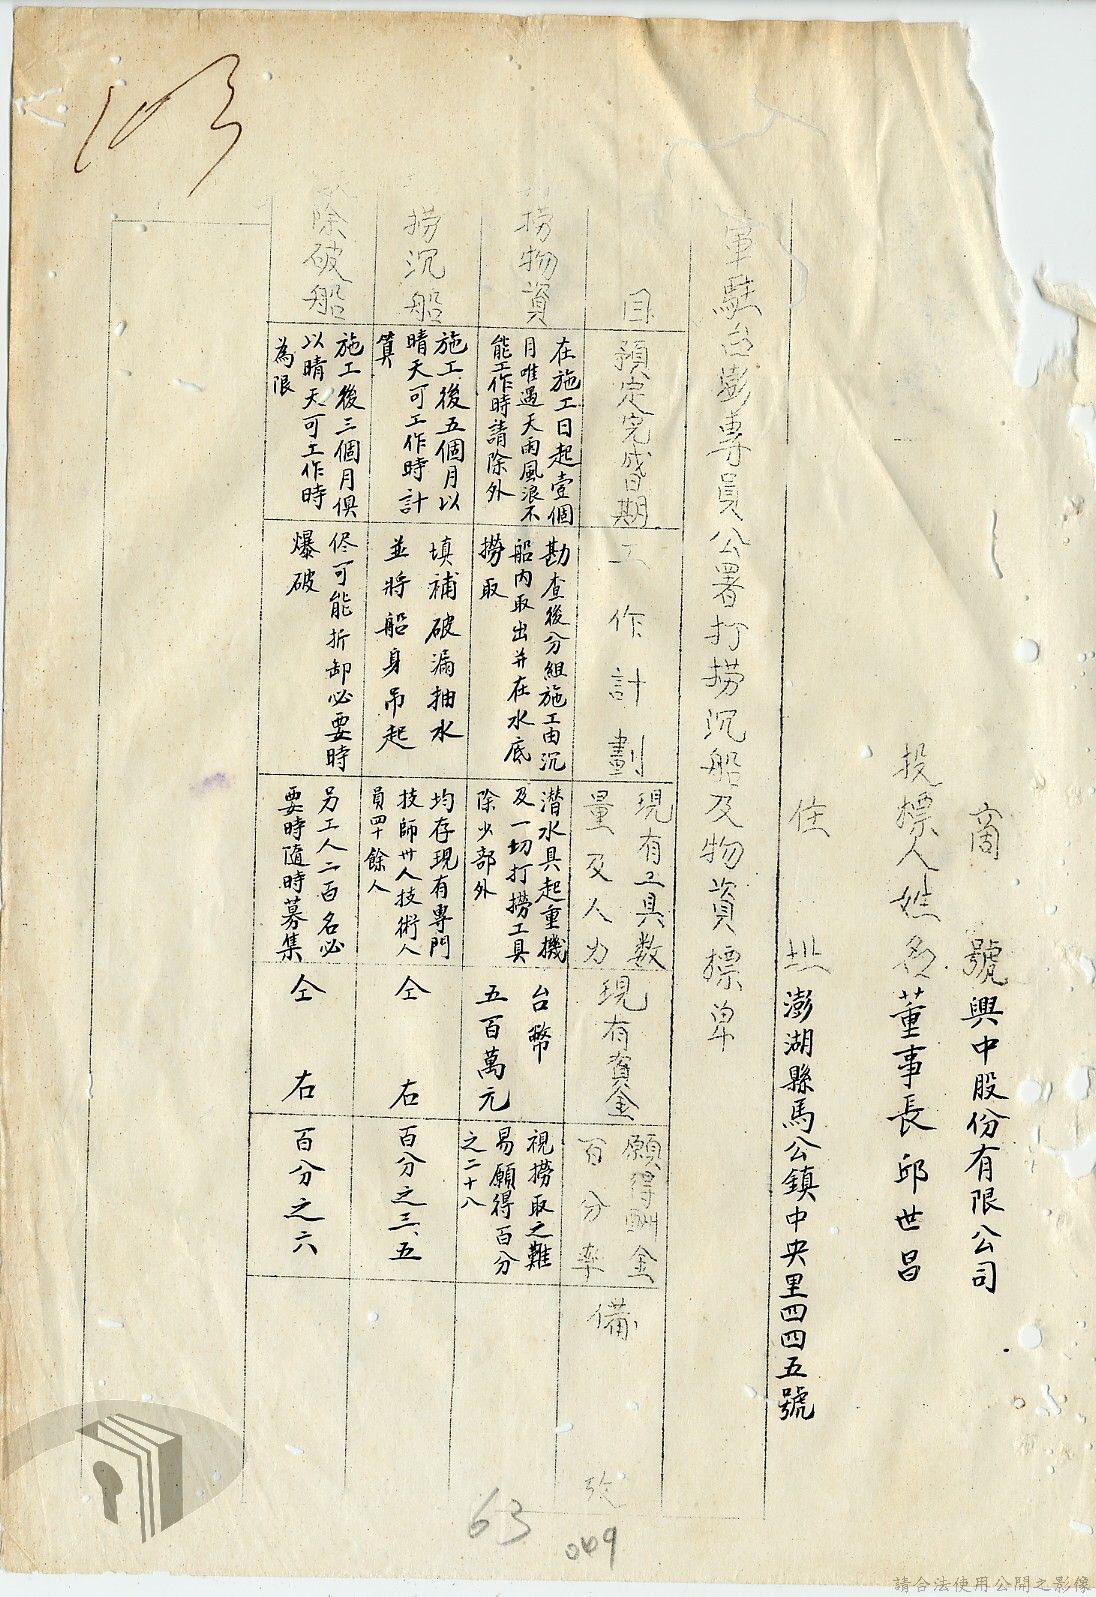 商號 興中股份有限公司
投標人姓名 董事長 邱世昌
住址 澎湖縣馬公鎮中央里四四五號
軍駐台澎專員公署打撈沉船及物資標单
目
預定完成日期
工作計劃
現有工具数
量及人力
現有資金
願得酬金
百分率
備攷
撈物資
在施工日起壹個
月唯遇天雨風浪不
能工作時請除外
勘查後分組施工由沉
船内取出并在水底
撈取
潛水具起重機
及一切打撈工具
除少部外
台幣
五百萬元
視撈取之難
易願得百分
之二十八
撈沉船
施工後五個月以
晴天可工作時計
算
填補破漏抽水
並將船身吊起
均存現有專門
技師卅人技術人
員四十餘人
仝右
百分之三、五
除破船
施工後三個月俱
以晴天可工作時
為限
侭可能折卸必要時
爆破
另工人二百名必
要時隨時募集
仝右
百分之六
103
63
049
請合法使用公開之影像